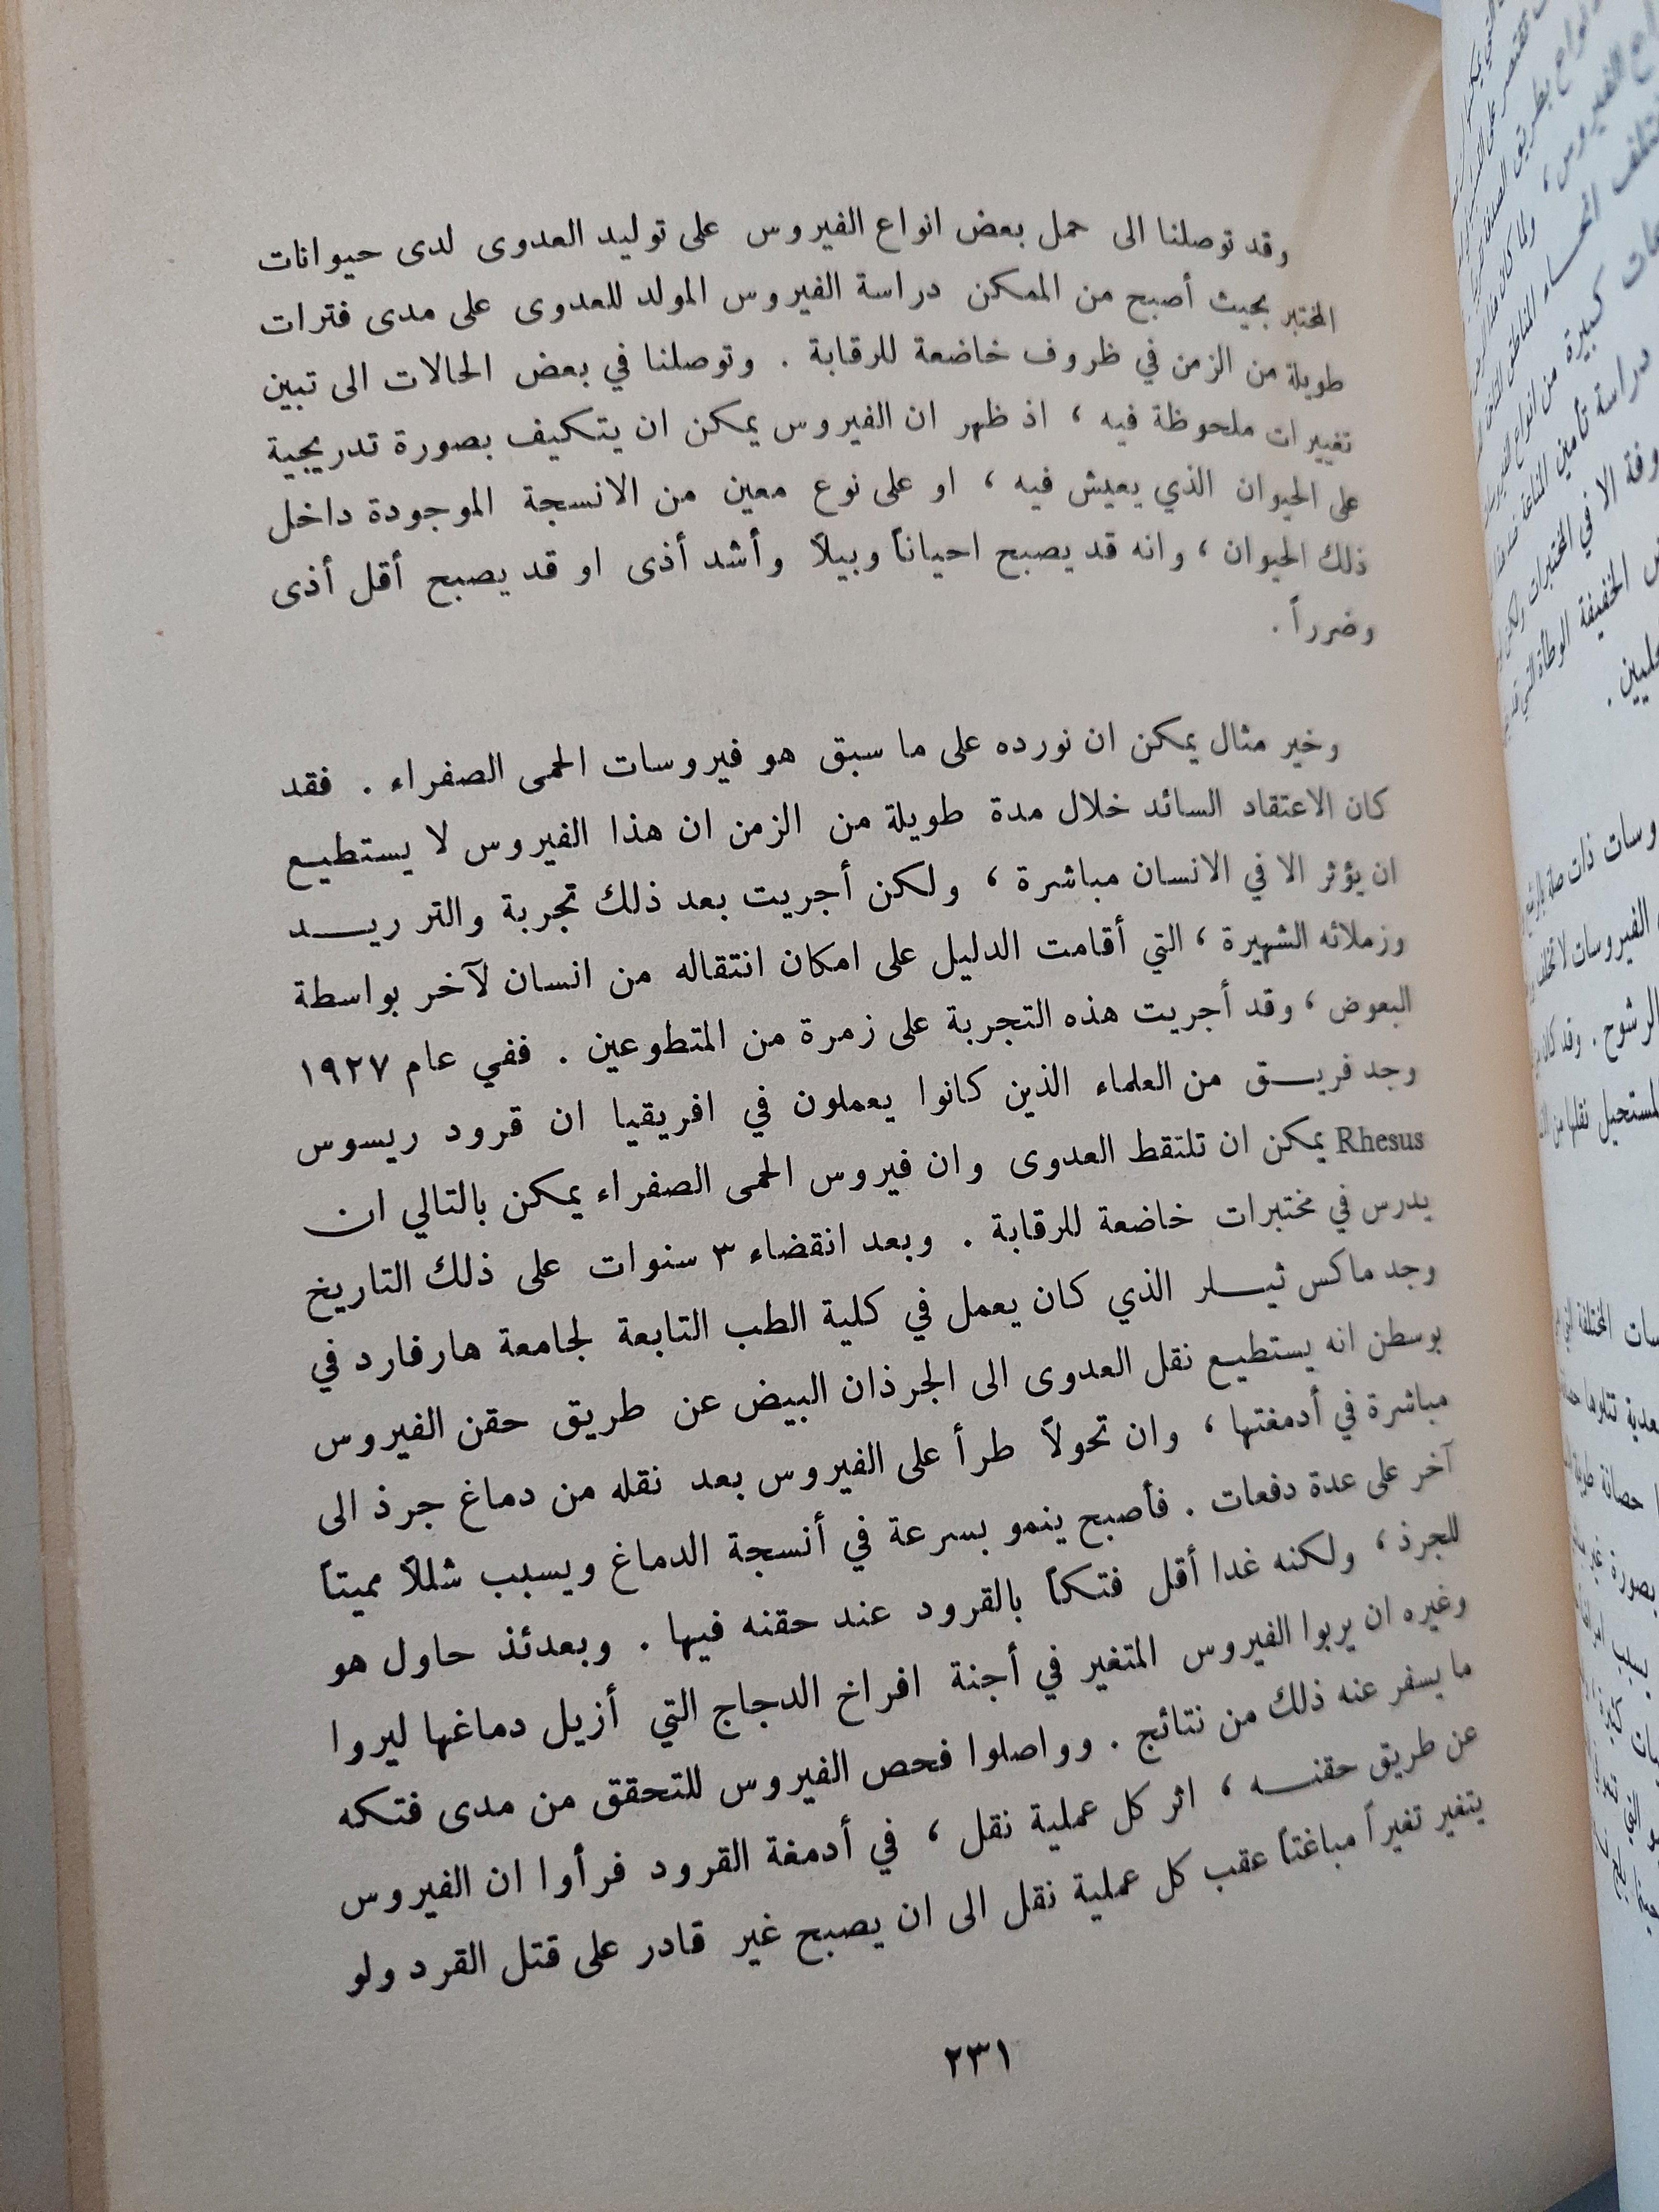 وقد توصلنا الى حمل بعض انواع الفيروس على توليد العدوى لدى حيوانات
المختبر بحيث أصبح من الممكن دراسة الفيروس المولد للعدوى على مدى فترات
طويلة من الزمن في ظروف خاضعة للرقابة . وتوصلنا في بعض الحالات الى تبين
تغييرات ملحوظة فيه ، اذ ظهر ان الفيروس يمكن ان يتكيف بصورة تدريجية
على الحيوان الذي يعيش فيه ، او على نوع معين من الانسجة الموجودة داخل
ذلك الحيوان ، وانه قد يصبح احياناً وبيلاً وأشد أذى او قد يصبح أقل أذى
وضرراً .
وخير مثال يمكن ان نورده على ما سبق هو فيروسات الحمى الصفراء . فقد
كان الاعتقاد السائد خلال مدة طويلة من الزمن ان هذا الفيروس لا يستطيع
ان يؤثر الا في الانسان مباشرة ، ولكن أجريت بعد ذلك تجربة والتر ريد
وزملائه الشهيرة ، التي أقامت الدليل على امكان انتقاله من انسان لآخر بواسطة
البعوض ، وقد أجريت هذه التجربة على زمرة من المتطوعين . ففي عام ١٩٢٧
وجد فريق من العلماء الذين كانوا يعملون في افريقيا ان قرود ريسوس
Rhesus يمكن ان تلتقط العدوى وان فيروس الحمى الصفراء يمكن بالتالي ان
يدرس في مختبرات خاضعة للرقابة . وبعد انقضاء ٣ سنوات على ذلك التاريخ
وجد ماكس ثيلر الذي كان يعمل في كلية الطب التابعة لجامعة هارفارد في
بوسطن انه يستطيع نقل العدوى الى الجرذان البيض عن طريق حقن الفيروس
مباشرة في أدمغتها ، وان تحولاً طرأ على الفيروس بعد نقله من دماغ جرذ الى
آخر على عدة دفعات . فأصبح ينمو بسرعة في أنسجة الدماغ ويسبب شللاً مميتاً
للجرذ ، ولكنه غدا أقل فتكاً بالقرود عند حقنه فيها . وبعدئذ حاول هو
وغيره ان يربوا الفيروس المتغير في أجنة افراخ الدجاج التي أزيل دماغها ليروا
ما يسفر عنه ذلك من نتائج . وواصلوا فحص الفيروس للتحقق من مدى فتكه
عن طريق حقنه ، اثر كل عملية نقل ، في أدمغة القرود فرأوا ان الفيروس
يتغير تغيراً مباغتاً عقب كل عملية نقل الى ان يصبح غير قادر على قتل القرد ولو
٢٣١